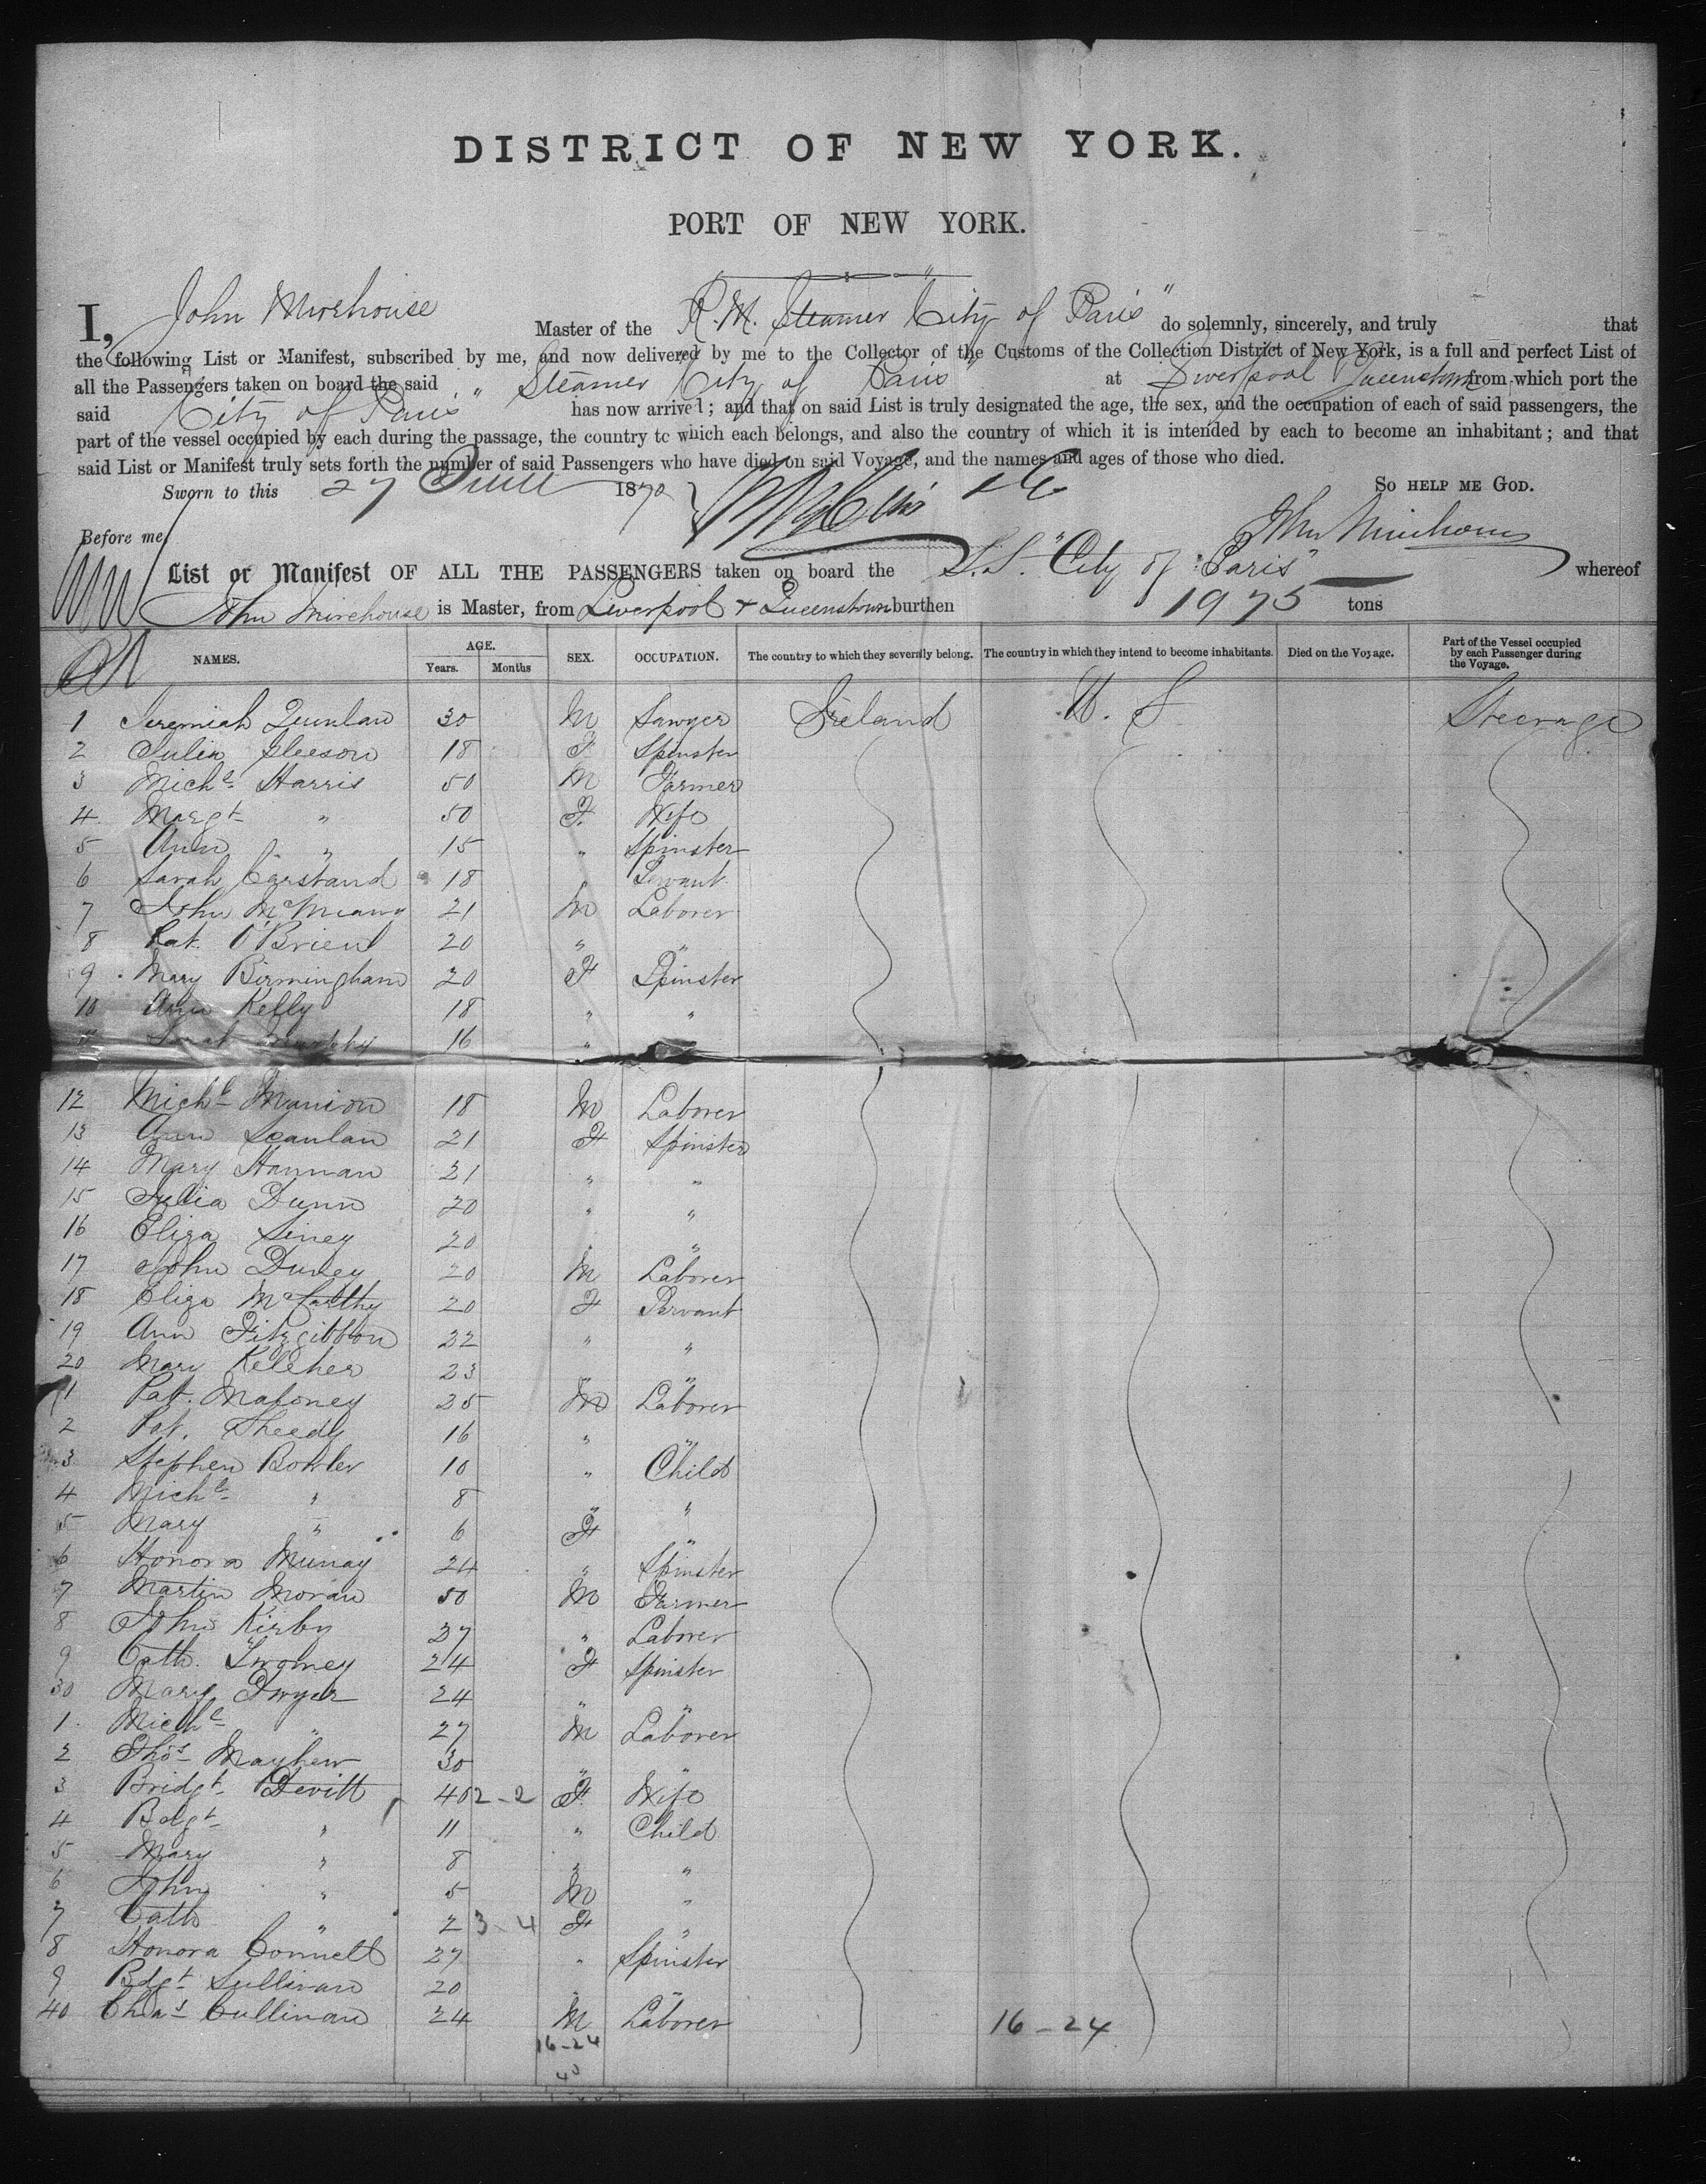 DISTRICT OF NEW YORK.
PORT OF NEW YORK.
I, John Mirehouse Master of the R. M. Steamer "City of Paris" do solemnly, sincerely, and truly that
the following List or Manifest, subscribed by me, and now delivered by me to the Collector of the Customs of the Collection District of New York, is a full and perfect List of
all the Passengers taken on board the said "Steamer City of Paris" at Liverpool & Queenstown from which port the
said "City of Paris" has now arrived; and that on said List is truly designated the age, the sex, and the occupation of each of said passengers, the
part of the vessel occupied by each during the passage, the country to which each belongs, and also the country of which it is intended by each to become an inhabitant; and that
said List or Manifest truly sets forth the number of said Passengers who have died on said Voyage, and the names and ages of those who died.
Sworn to this 27 June 1870 So HELP ME GOD.
Before me, John Mirehouse
List or Manifest OF ALL THE PASSENGERS taken on board the S.S. "City of Paris" whereof
John Mirehouse is Master, from Liverpool & Queenstown burthen 1975 tons
NAMES. AGE. Years. Months SEX. OCCUPATION. The country to which they severally belong. The country in which they intend to become inhabitants. Died on the Voyage. Part of the Vessel occupied by each Passenger during the Voyage.
1 Jeremiah Quinlan 30 M Sawyer Ireland U. S Steerage
2 Julia Gleeson 18 F Spinster
3 Michl Harris 50 M Farmer
4 Margt " 50 F. Wife
5 Ann " 15 " Spinster
6 Sarah 18 Servant
7 John 21 M Laborer
8 Pat. O'Brien 20 " "
9 Mary Birmingham 20 F Spinster
10 Ann Kelly 18 " "
11 Murphy 16 "
12 Michl Manion 18 M Laborer
13 Ann Scanlan 21 F Spinster
14 Mary Hannan 21 " "
15 Julia Dunn 20 " "
16 Eliza Siney 20 " "
17 John Duney 20 M Laborer
18 Eliza McCarthy 20 F Servant
19 Ann Fitzgibbon 22 " "
20 Mary Keleher 23 " "
1 Pat. Maloney 25 M Laborer
2 Pat. Sheedy 16 " "
3 Stephen Bowler 10 " Child
4 Michl " 8 " "
5 Mary " 6 F "
6 Honora Murray 24 " Spinster
7 Martin Moran 50 M Farmer
8 John Kirby 27 " Laborer
9 Cath. Twomey 24 F Spinster
30 Mary Dwyer 24 " "
1 Michl " 27 M Laborer
2 Thos Mayhew 30 " "
3 Bridgt Devitt 40 2-2 F. Wife
4 Bdgt " 11 " Child
5 Mary " 8 " "
6 John " 5 M "
7 Cath " 2 3-4 F "
8 Honora Connell 27 " Spinster
9 Bdgt Sullivan 20 " "
40 Chas Cullinan 24 M Laborer
16-24 16-24
40